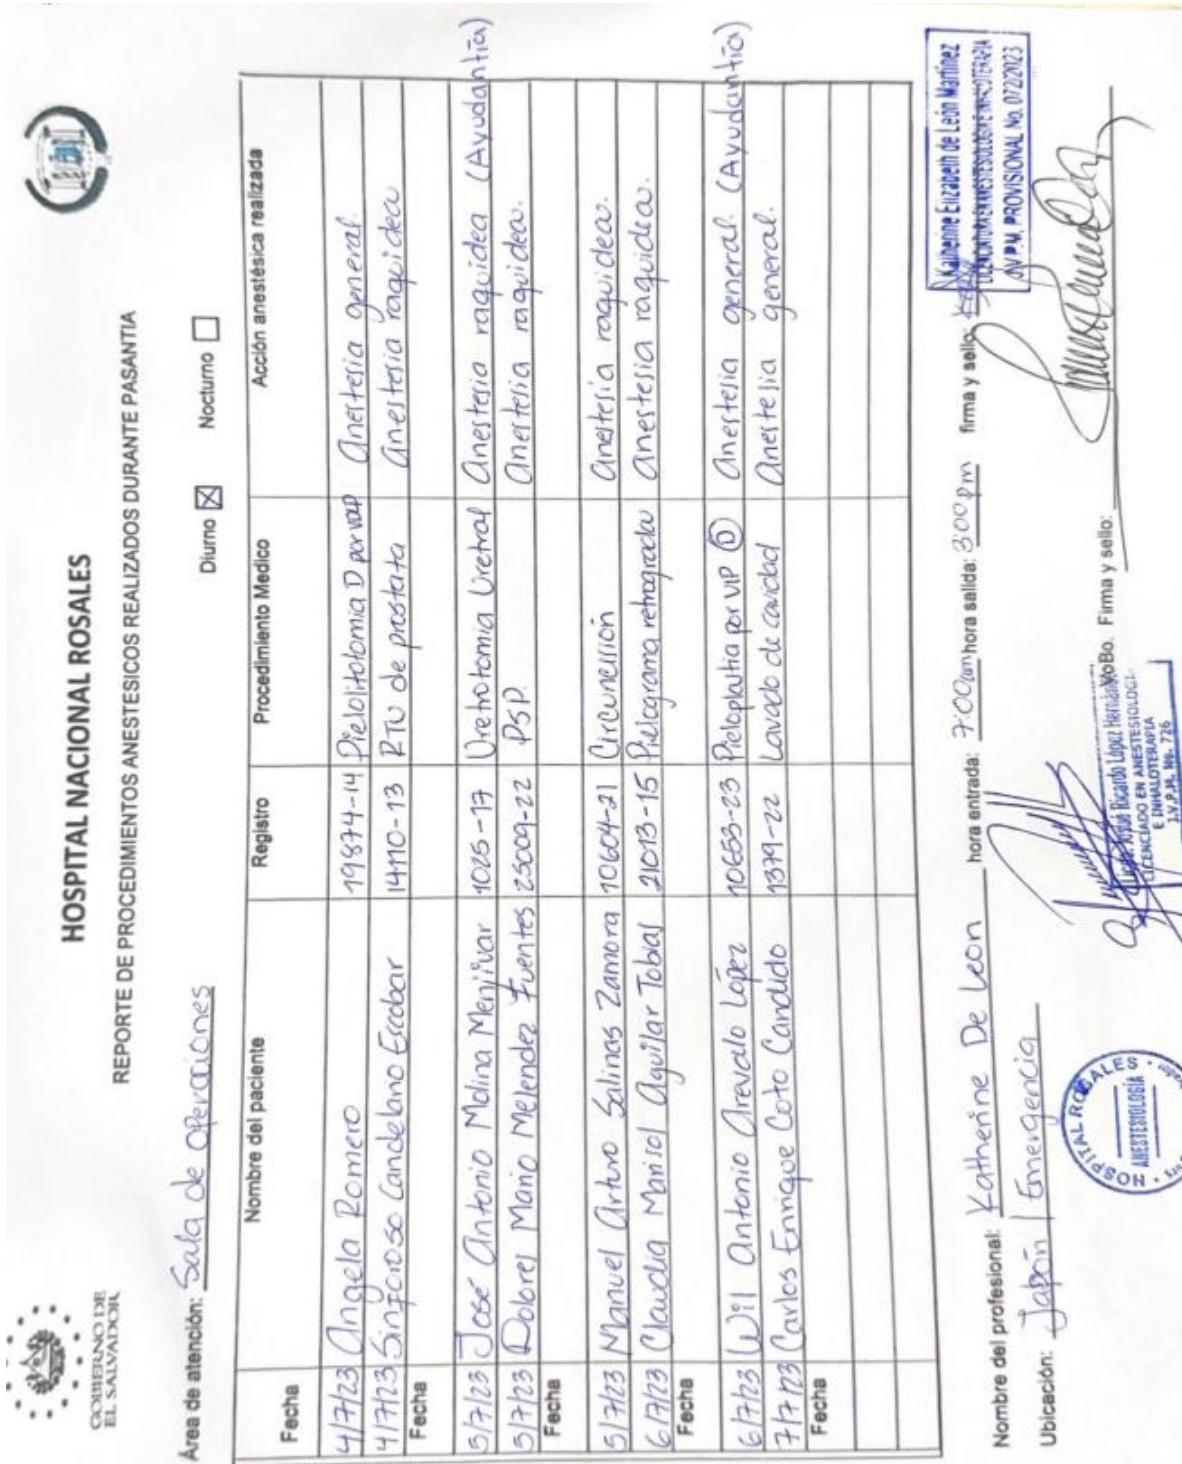 GOBIERNO DE
EL SALVADOR
HOSPITAL NACIONAL ROSALES
REPORTE DE PROCEDIMIENTOS ANESTESICOS REALIZADOS DURANTE PASANTIA
Área de atención: Sala de Operaciones Diurno ☒ Nocturno ☐
Fecha Nombre del paciente Registro Procedimiento Medico Acción anestésica realizada
4/7/23 Angela Romero 19874-14 Pielolitotomia D por Anestesia general.
4/7/23 Sinforoso Candelario Escobar 14110-13 RTU de prostata Anestesia raquidea
Fecha
5/7/23 José Antonio Molina Menjivar 1025-17 Uretrotomia Uretral Anestesia raquidea (Ayudantía)
5/7/23 Dolores Mario Melendez Fuentes 25009-22 PSP. Anestesia raquidea.
Fecha
5/7/23 Manuel Arturo Salinas Zamora 10604-21 Circuncisión Anestesia raquidea.
6/7/23 Claudia Marisol Aguilar Tobias 21013-15 Pielograma retrograda Anestesia raquidea.
Fecha
6/7/23 Wil Antonio Arevalo López 10653-23 Pieloplastia por VIP D Anestesia general. (Ayudantía)
7/7/23 Carlos Enrique Coto Candido 1379-22 Lavado de cavidad Anestesia general.
Fecha
Nombre del profesional: Katherine De Leon hora entrada: 7:00am hora salida: 3:00pm firma y sello:
Katherine Elizabeth de León Martínez
LICENCIATURA EN ANESTESIOLOGIA E INHALOTERAPIA
J.V.P.M. PROVISIONAL No. 072/2023
Ubicación: Japón / Emergencia VoBo. Firma y sello:
HOSPITAL ROSALES
ANESTESIOLOGÍA
Ricardo López Hernández
LICENCIADO EN ANESTESIOLOGIA
E INHALOTERAPIA
J.V.P.M. No. 726